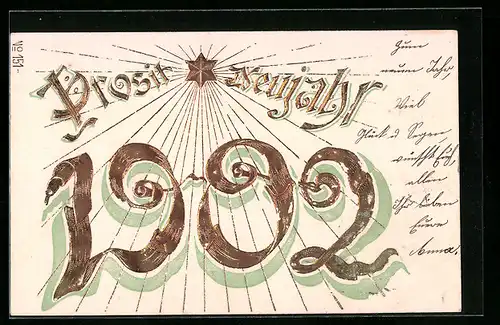 No 151-
Prosit Neujahr
1902
Zum
neuen Jahr,
Viel
Glück u Segen
wünscht Euch,
allen
Ihr Lieben
Eure
Anna!